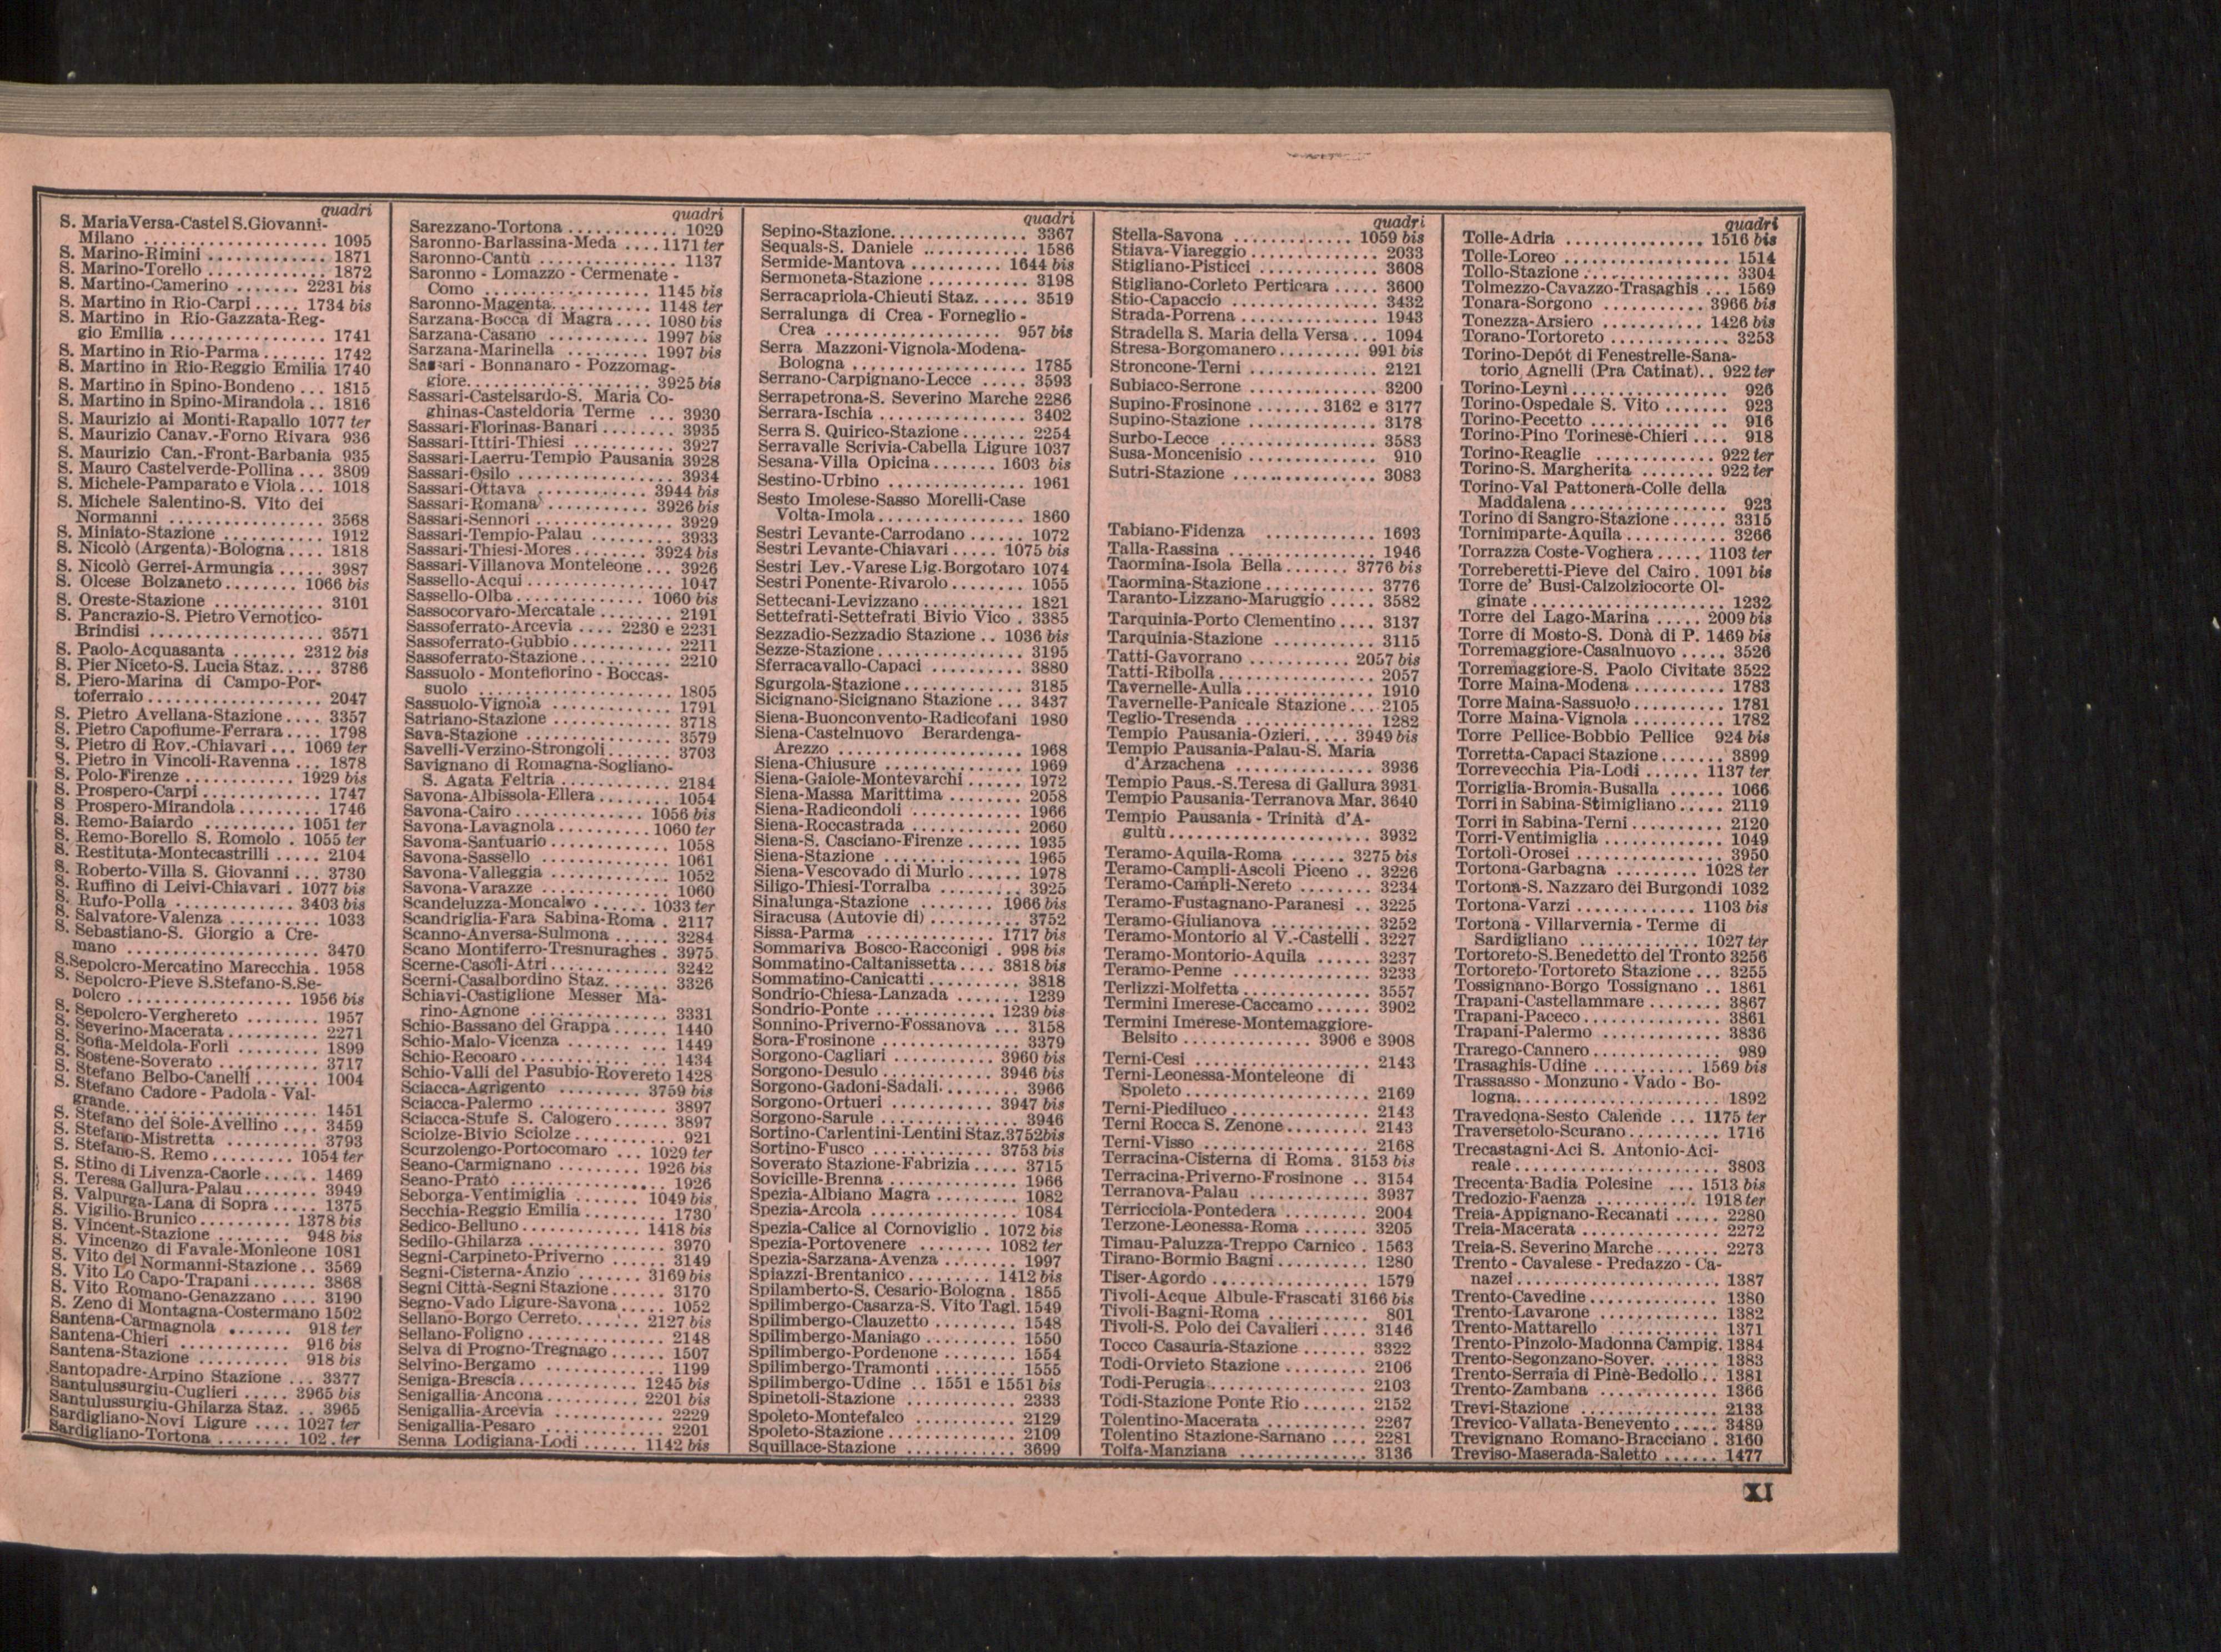 quadri
S. MariaVersa-Castel S.Giovanni-
Milano .................... 1095
S. Marino-Rimini ............. 1871
S. Marino-Torello ............. 1872
S. Martino-Camerino ....... 2231 bis
S. Martino in Rio-Carpi ..... 1734 bis
S. Martino in Rio-Gazzata-Reg-
gio Emilia .................. 1741
S. Martino in Rio-Parma ....... 1742
S. Martino in Rio-Reggio Emilia 1740
S. Martino in Spino-Bondeno ... 1815
S. Martino in Spino-Mirandola .. 1816
S. Maurizio ai Monti-Rapallo 1077 ter
S. Maurizio Canav.-Forno Rivara 936
S. Maurizio Can.-Front-Barbania 935
S. Mauro Castelverde-Pollina ... 3809
S. Michele-Pamparato e Viola ... 1018
S. Michele Salentino-S. Vito dei
Normanni ................. 3568
S. Miniato-Stazione ........... 1912
S. Nicolò (Argenta)-Bologna .... 1818
S. Nicolò Gerrei-Armungia ..... 3987
S. Olcese Bolzaneto ........ 1066 bis
S. Oreste-Stazione ............ 3101
S. Pancrazio-S. Pietro Vernotico-
Brindisi ................... 3571
S. Paolo-Acquasanta ....... 2312 bis
S. Pier Niceto-S. Lucia Staz. .... 3786
S. Piero-Marina di Campo-Por-
toferraio ................... 2047
S. Pietro Avellana-Stazione .... 3357
S. Pietro Capofiume-Ferrara .... 1798
S. Pietro di Rov.-Chiavari ... 1069 ter
S. Pietro in Vincoli-Ravenna ... 1878
S. Polo-Firenze ............ 1929 bis
S. Prospero-Carpi ............. 1747
S Prospero-Mirandola ......... 1746
S. Remo-Baiardo .......... 1051 ter
S. Remo-Borello S. Romolo . 1055 ter
S. Restituta-Montecastrilli ..... 2104
S. Roberto-Villa S. Giovanni ... 3730
S. Ruffino di Leivi-Chiavari . 1077 bis
S. Rufo-Polla ............. 3403 bis
S. Salvatore-Valenza .......... 1033
S. Sebastiano-S. Giorgio a Cre-
mano ..................... 3470
S.Sepolcro-Mercatino Marecchia . 1958
S. Sepolcro-Pieve S.Stefano-S.Se-
polcro .................. 1956 bis
S. Sepolcro-Verghereto ........ 1957
S. Severino-Macerata .......... 2271
S. Sofia-Meldola-Forlì ......... 1899
S. Sostene-Soverato ........... 3717
S. Stefano Belbo-Canelli ....... 1004
S. Stefano Cadore - Padola - Val-
grande ..................... 1451
S. Stefano del Sole-Avellino .... 3459
S. Stefano-Mistretta .......... 3793
S. Stefano-S. Remo ......... 1054 ter
S. Stino di Livenza-Caorle ...... 1469
S. Teresa Gallura-Palau ........ 3949
S. Valpurga-Lana di Sopra ..... 1375
S. Vigilio-Brunico .......... 1378 bis
S. Vincent-Stazione ........ 948 bis
S. Vincenzo di Favale-Monleone 1081
S. Vito dei Normanni-Stazione .. 3569
S. Vito Lo Capo-Trapani ....... 3868
S. Vito Romano-Genazzano .... 3190
S. Zeno di Montagna-Costermano 1502
Santena-Carmagnola ....... 918 ter
Santena-Chieri ............ 916 bis
Santena-Stazione .......... 918 bis
Santopadre-Arpino Stazione ... 3377
Santulussurgiu-Cuglieri ..... 3965 bis
Santulussurgiu-Ghilarza Staz. .. 3965
Sardigliano-Novi Ligure .... 1027 ter
Sardigliano-Tortona ........ ter
quadri
Sarezzano-Tortona ............ 1029
Saronno-Barlassina-Meda .... 1171 ter
Saronno-Cantù ............... 1137
Saronno - Lomazzo - Cermenate -
Como .................. 1145 bis
Saronno-Magenta ........... 1148 ter
Sarzana-Bocca di Magra .... 1080 bis
Sarzana-Casano ........... 1997 bis
Sarzana-Marinella ......... 1997 bis
Sassari - Bonnanaro - Pozzomag-
giore .................... 3925 bis
Sassari-Castelsardo-S. Maria Co-
ghinas-Casteldoria Terme ... 3930
Sassari-Florinas-Banari ........ 3935
Sassari-Ittiri-Thiesi ........... 3927
Sassari-Laerru-Tempio Pausania 3928
Sassari-Osilo ................. 3934
Sassari-Ottava ............ 3944 bis
Sassari-Romana ........... 3926 bis
Sassari-Sennori ............... 3929
Sassari-Tempio-Palau ......... 3933
Sassari-Thiesi-Mores ........ 3924 bis
Sassari-Villanova Monteleone ... 3926
Sassello-Acqui ................ 1047
Sassello-Olba .............. 1060 bis
Sassocorvaro-Mercatale ........ 2191
Sassoferrato-Arcevia .... 2230 e 2231
Sassoferrato-Gubbio ........... 2211
Sassoferrato-Stazione .......... 2210
Sassuolo - Montefiorino - Boccas-
suolo ..................... 1805
Sassuolo-Vignola ............. 1791
Satriano-Stazione ............. 3718
Sava-Stazione ................ 3579
Savelli-Verzino-Strongoli ....... 3703
Savignano di Romagna-Sogliano-
S. Agata Feltria ............ 2184
Savona-Albissola-Ellera ........ 1054
Savona-Cairo .............. 1056 bis
Savona-Lavagnola .......... 1060 ter
Savona-Santuario ............. 1058
Savona-Sassello .............. 1061
Savona-Valleggia ............. 1052
Savona-Varazze .............. 1060
Scandeluzza-Moncalvo ...... 1033 ter
Scandriglia-Fara Sabina-Roma . 2117
Scanno-Anversa-Sulmona ...... 3284
Scano Montiferro-Tresnuraghes . 3975
Scerne-Casoli-Atri ............. 3242
Scerni-Casalbordino Staz. ....... 3326
Schiavi-Castiglione Messer Ma-
rino-Agnone ............... 3331
Schio-Bassano del Grappa ...... 1440
Schio-Malo-Vicenza ....... ... 1449
Schio-Recoaro ................ 1434
Schio-Valli del Pasubio-Rovereto 1428
Sciacca-Agrigento ......... 3759 bis
Sciacca-Palermo .............. 3897
Sciacca-Stufe S. Calogero ....... 3897
Sciolze-Bivio Sciolze ........... 921
Scurzolengo-Portocomaro ... 1029 ter
Seano-Carmignano ......... 1926 bis
Seano-Prato ................. 1926
Seborga-Ventimiglia ........ 1049 bis
Secchia-Reggio Emilia ......... 1730
Sedico-Belluno ............. 1418 bis
Sedilo-Ghilarza ............... 3970
Segni-Carpineto-Priverno ...... 3149
Segni-Cisterna-Anzio ....... 3169 bis
Segni Città-Segni Stazione ...... 3170
Segno-Vado Ligure-Savona ..... 1052
Sellano-Borgo Cerreto ........ 2127 bis
Sellano-Foligno ............... 2148
Selva di Progno-Tregnago ...... 1507
Selvino-Bergamo ............. 1199
Seniga-Brescia ............. 1245 bis
Senigallia-Ancona .......... 2201 bis
Senigallia-Arcevia ............ 2229
Senigallia-Pesaro ............. 2201
Senna Lodigiana-Lodi ...... 1142 bis
quadri
Sepino-Stazione ............... 3367
Sequals-S. Daniele ............ 1586
Sermide-Mantova .......... 1644 bis
Sermoneta-Stazione ........... 3198
Serracapriola-Chieuti Staz. ..... 3519
Serralunga di Crea - Forneglio -
Crea ................... 957 bis
Serra Mazzoni-Vignola-Modena-
Bologna ................... 1785
Serrano-Carpignano-Lecce ..... 3593
Serrapetrona-S. Severino Marche 2286
Serrara-Ischia ................ 3402
Serra S. Quirico-Stazione ....... 2254
Serravalle Scrivia-Cabella Ligure 1037
Sesana-Villa Opicina ....... 1603 bis
Sestino-Urbino ............... 1961
Sesto Imolese-Sasso Morelli-Case
Volta-Imola ................ 1860
Sestri Levante-Carrodano ...... 1072
Sestri Levante-Chiavari ..... 1075 bis
Sestri Lev.-Varese Lig.Borgotaro 1074
Sestri Ponente-Rivarolo ........ 1055
Settecani-Levizzano ........... 1821
Settefrati-Settefrati Bivio Vico . 3385
Sezzadio-Sezzadio Stazione .. 1036 bis
Sezze-Stazione ................ 3195
Sferracavallo-Capaci .......... 3880
Sgurgola-Stazione ............. 3185
Sicignano-Sicignano Stazione ... 3437
Siena-Buonconvento-Radicofani 1980
Siena-Castelnuovo Berardenga-
Arezzo .................... 1968
Siena-Chiusure ............... 1969
Siena-Gaiole-Montevarchi ...... 1972
Siena-Massa Marittima ........ 2058
Siena-Radicondoli ............ 1966
Siena-Roccastrada ............ 2060
Siena-S. Casciano-Firenze ...... 1935
Siena-Stazione ............... 1965
Siena-Vescovado di Murlo ...... 1978
Siligo-Thiesi-Torralba ......... 3925
Sinalunga-Stazione ........ 1966 bis
Siracusa (Autovie di) .......... 3752
Sissa-Parma .............. 1717 bis
Sommariva Bosco-Racconigi . 998 bis
Sommatino-Caltanissetta .... 3818 bis
Sommatino-Canicattì .......... 3818
Sondrio-Chiesa-Lanzada ....... 1239
Sondrio-Ponte ............. 1239 bis
Sonnino-Priverno-Fossanova ... 3158
Sora-Frosinone ............... 3379
Sorgono-Cagliari ........... 3960 bis
Sorgono-Desulo ............ 3946 bis
Sorgono-Gadoni-Sadali. ........ 3966
Sorgono-Ortueri ........... 3947 bis
Sorgono-Sarule ............... 3946
Sortino-Carlentini-Lentini Staz.3752bis
Sortino-Fusco ............. 3753 bis
Soverato Stazione-Fabrizia ..... 3715
Sovicille-Brenna .............. 1966
Spezia-Albiano Magra ......... 1082
Spezia-Arcola ................ 1084
Spezia-Calice al Cornoviglio . 1072 bis
Spezia-Portovenere ........ 1082 ter
Spezia-Sarzana-Avenza ........ 1997
Spiazzi-Brentanico ......... 1412 bis
Spilamberto-S. Cesario-Bologna . 1855
Spilimbergo-Casarza-S. Vito Tagl. 1549
Spilimbergo-Clauzetto ......... 1548
Spilimbergo-Maniago .......... 1550
Spilimbergo-Pordenone ........ 1554
Spilimbergo-Tramonti ......... 1555
Spilimbergo-Udine .. 1551 e 1551 bis
Spinetoli-Stazione ............ 2333
Spoleto-Montefalco ............ 2129
Spoleto-Stazione .............. 2109
Squillace-Stazione ............ 3699
quadri
Stella-Savona ............. 1059 bis
Stiava-Viareggio .............. 2033
Stigliano-Pisticci ............. 3608
Stigliano-Corleto Perticara ..... 3600
Stio-Capaccio ................ 3432
Strada-Porrena ............... 1943
Stradella S. Maria della Versa ... 1094
Stresa-Borgomanero ......... 991 bis
Stroncone-Terni .............. 2121
Subiaco-Serrone .............. 3200
Supino-Frosinone ....... 3162 e 3177
Supino-Stazione .............. 3178
Surbo-Lecce ................. 3583
Susa-Moncenisio .............. 910
Sutri-Stazione ................ 3083
Tabiano-Fidenza ............ 1693
Talla-Rassina ................ 1946
Taormina-Isola Bella ....... 3776 bis
Taormina-Stazione ............ 3776
Taranto-Lizzano-Maruggio ..... 3582
Tarquinia-Porto Clementino .... 3137
Tarquinia-Stazione ............ 3115
Tatti-Gavorrano ........... 2057 bis
Tatti-Ribolla ................. 2057
Tavernelle-Aulla .............. 1910
Tavernelle-Panicale Stazione .... 2105
Teglio-Tresenda .............. 1282
Tempio Pausania-Ozieri ..... 3949 bis
Tempio Pausania-Palau-S. Maria
d'Arzachena ............... 3936
Tempio Paus.-S.Teresa di Gallura 3931
Tempio Pausania-Terranova Mar. 3640
Tempio Pausania - Trinità d'A-
gultù ...................... 3932
Teramo-Aquila-Roma ...... 3275 bis
Teramo-Campli-Ascoli Piceno .. 3226
Teramo-Campli-Nereto ........ 3234
Teramo-Fustagnano-Paranesi .. 3225
Teramo-Giulianova ........... 3252
Teramo-Montorio al V.-Castelli . 3227
Teramo-Montorio-Aquila ...... 3237
Teramo-Penne ............... 3233
Terlizzi-Molfetta .............. 3557
Termini Imerese-Caccamo ...... 3902
Termini Imerese-Montemaggiore-
Belsito ............. 3906 e 3908
Terni-Cesi ................... 2143
Terni-Leonessa-Monteleone di
Spoleto .................... 2169
Terni-Piediluco ............... 2143
Terni Rocca S. Zenone ......... 2143
Terni-Visso .................. 2168
Terracina-Cisterna di Roma . 3153 bis
Terracina-Priverno-Frosinone .. 3154
Terranova-Palau .............. 3937
Terricciola-Pontedera .......... 2004
Terzone-Leonessa-Roma ....... 3205
Timau-Paluzza-Treppo Carnico . 1563
Tirano-Bormio Bagni .......... 1280
Tiser-Agordo ................. 1579
Tivoli-Acque Albule-Frascati 3166 bis
Tivoli-Bagni-Roma ........... 801
Tivoli-S. Polo dei Cavalieri ..... 3146
Tocco Casauria-Stazione ....... 3322
Todi-Orvieto Stazione ......... 2106
Todi-Perugia ................. 2103
Todi-Stazione Ponte Rio ....... 2152
Tolentino-Macerata ........... 2267
Tolentino Stazione-Sarnano .... 2281
Tolfa-Manziana .............. 3136
quadri
Tolle-Adria ............... 1516 bis
Tolle-Loreo .................. 1514
Tollo-Stazione ................ 3304
Tolmezzo-Cavazzo-Trasaghis ... 1569
Tonara-Sorgono ........... 3966 bis
Tonezza-Arsiero ........... 1426 bis
Torano-Tortoreto ............. 3253
Torino-Depôt di Fenestrelle-Sana-
torio Agnelli (Pra Catinat) .. 922 ter
Torino-Leynì ................. 926
Torino-Ospedale S. Vito ....... 923
Torino-Pecetto ............ .. 916
Torino-Pino Torinese-Chieri .... 918
Torino-Reaglie ............. 922 ter
Torino-S. Margherita ........ 922 ter
Torino-Val Pattonera-Colle della
Maddalena ................. 923
Torino di Sangro-Stazione ...... 3315
Tornimparte-Aquila ........... 3266
Torrazza Coste-Voghera ..... 1103 ter
Torreberetti-Pieve del Cairo . 1091 bis
Torre de' Busi-Calzolziocorte Ol-
ginate ..................... 1232
Torre del Lago-Marina ..... 2009 bis
Torre di Mosto-S. Donà di P. 1469 bis
Torremaggiore-Casalnuovo ..... 3526
Torremaggiore-S. Paolo Civitate 3522
Torre Maina-Modena .......... 1783
Torre Maina-Sassuolo .......... 1781
Torre Maina-Vignola .......... 1782
Torre Pellice-Bobbio Pellice 924 bis
Torretta-Capaci Stazione ....... 3899
Torrevecchia Pia-Lodi ...... 1137 ter
Torriglia-Bromia-Busalla ...... 1066
Torri in Sabina-Stimigliano ..... 2119
Torri in Sabina-Terni .......... 2120
Torri-Ventimiglia ............. 1049
Tortolì-Orosei ................ 3950
Tortona-Garbagna ......... 1028 ter
Tortona-S. Nazzaro dei Burgondi 1032
Tortona-Varzi ............. 1103 bis
Tortona - Villarvernia - Terme di
Sardigliano ............. 1027 ter
Tortoreto-S.Benedetto del Tronto 3256
Tortoreto-Tortoreto Stazione ... 3255
Tossignano-Borgo Tossignano .. 1861
Trapani-Castellammare ........ 3867
Trapani-Paceco ............... 3861
Trapani-Palermo ............. 3836
Trarego-Cannero .............. 989
Trasaghis-Udine ........... 1569 bis
Trassasso - Monzuno - Vado - Bo-
logna ...................... 1892
Travedona-Sesto Calende ... 1175 ter
Traversetolo-Scurano .......... 1716
Trecastagni-Aci S. Antonio-Aci-
reale ...................... 3803
Trecenta-Badia Polesine ... 1513 bis
Tredozio-Faenza ........... 1918 ter
Treia-Appignano-Recanati ..... 2280
Treia-Macerata ............... 2272
Treia-S. Severino Marche ....... 2273
Trento - Cavalese - Predazzo - Ca-
nazei ...................... 1387
Trento-Cavedine .............. 1380
Trento-Lavarone ............. 1382
Trento-Mattarello ............ 1371
Trento-Pinzolo-Madonna Campig. 1384
Trento-Segonzano-Sover. ....... 1383
Trento-Serraia di Pinè-Bedollo .. 1381
Trento-Zambana ............. 1366
Trevi-Stazione ................ 2133
Trevico-Vallata-Benevento ..... 3489
Trevignano Romano-Bracciano . 3160
Treviso-Maserada-Saletto ...... 1477
XI